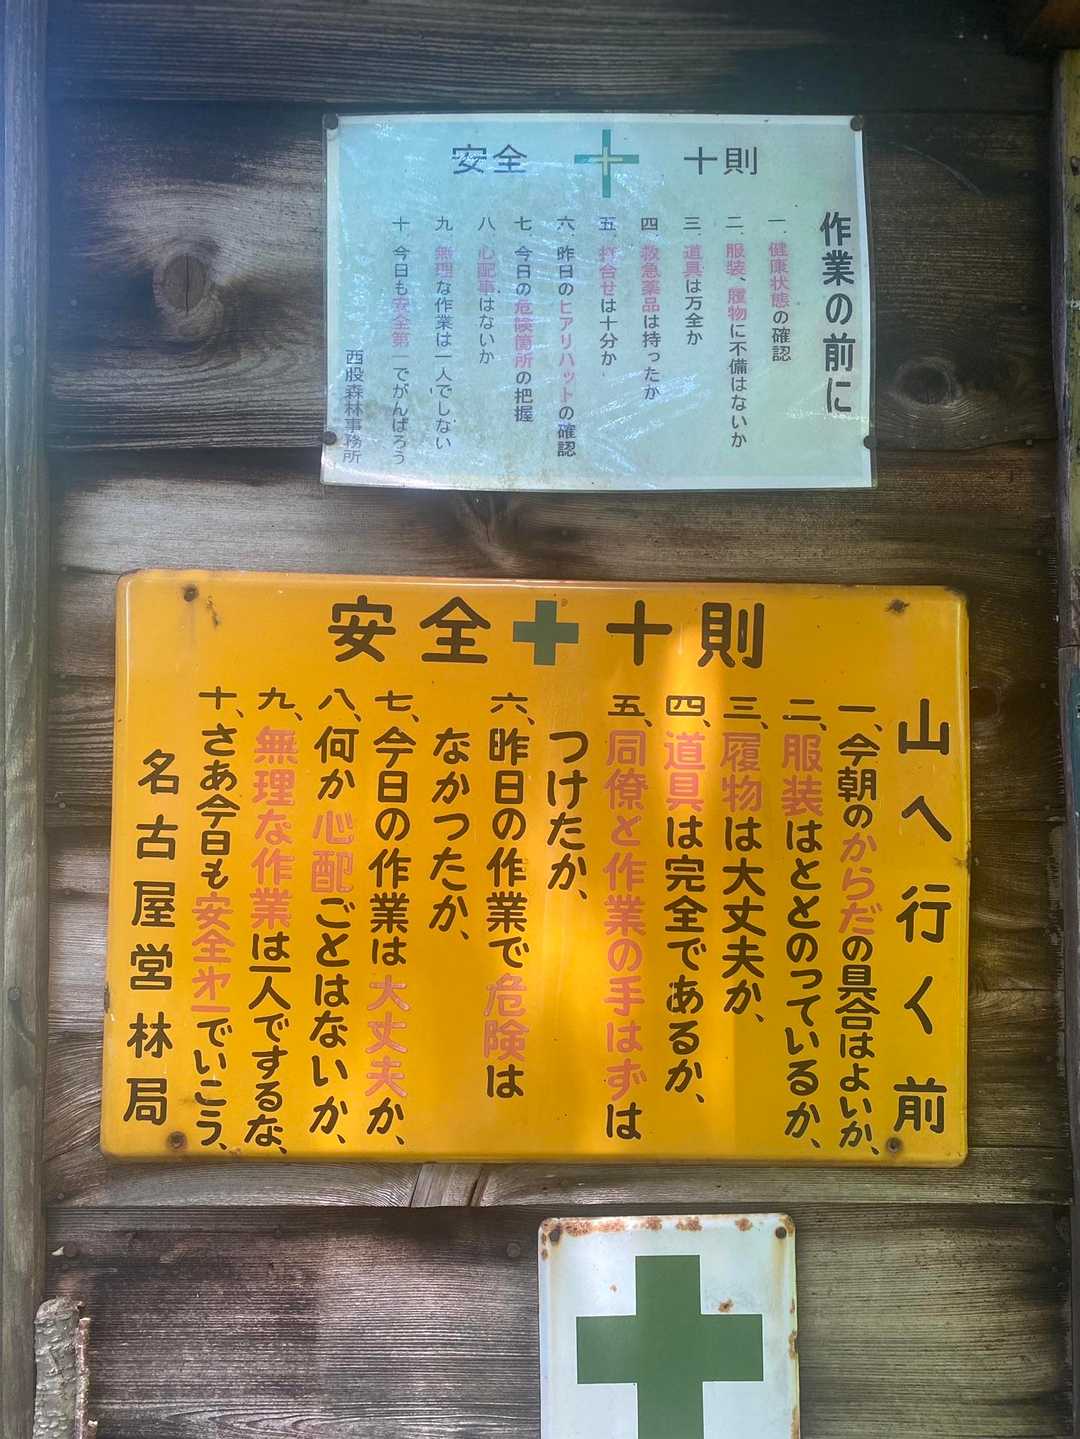 安全 十則
作業の前に
一、健康状態の確認
二、服装、履物に不備はないか
三、道具は万全か
四、救急薬品は持ったか
五、打合せは十分か
六、昨日のヒアリハットの確認
七、今日の危険箇所の把握
八、心配事はないか
九、無理な作業は一人でしない
十、今日も安全第一でがんばろう
西股森林事務所
安全十則
山へ行く前
一、今朝のからだの具合はよいか、
二、服装はととのっているか、
三、履物は大丈夫か、
四、道具は完全であるか、
五、同僚と作業の手はずは
つけたか、
六、昨日の作業で危険は
なかったか、
七、今日の作業は大丈夫か、
八、何か心配ごとはないか、
九、無理な作業は一人でするな、
十、さあ今日も安全㐧一でいこう、
名古屋営林局